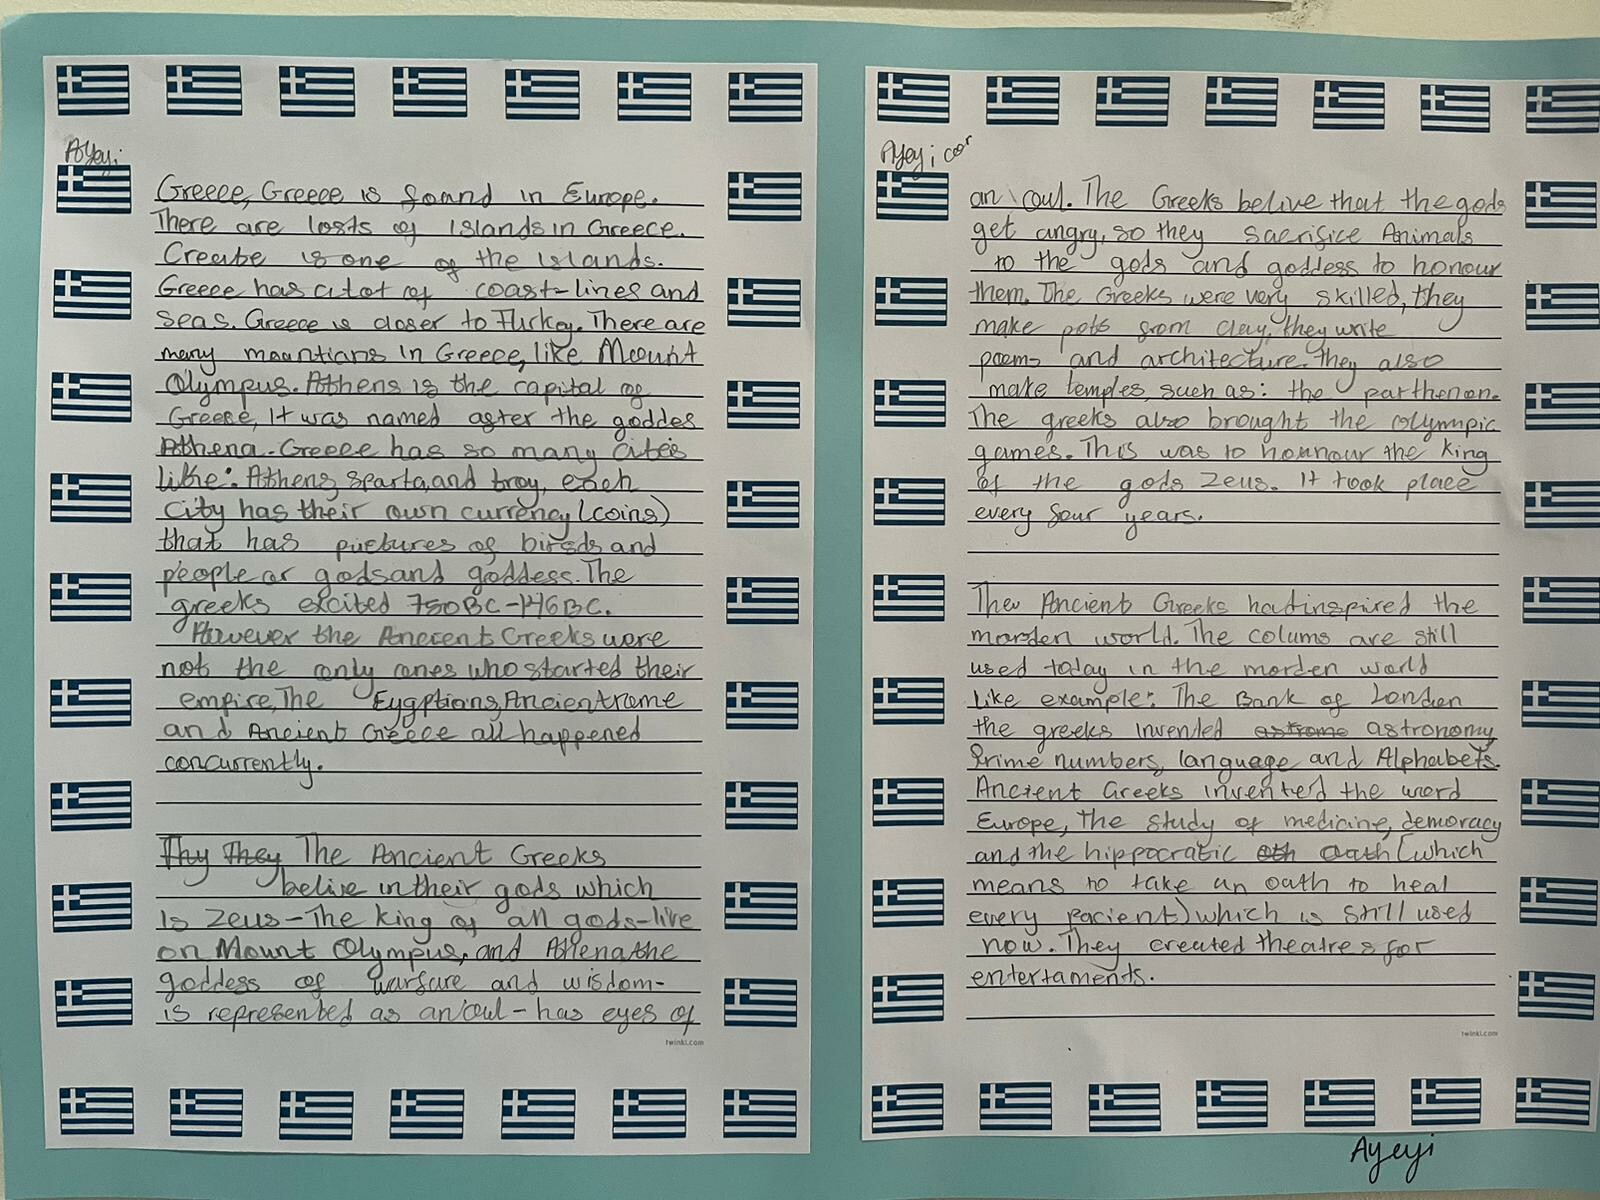 Ayeyi
Greece, Greece is found in Europe.
There are losts of islands in Greece.
Creabe is one of the islands.
Greece has alot of coast-lines and
seas. Greece is closer to Turkey. There are
many mountians in Greece, like Mount
Olympus. Athens is the capital of
Greece, It was named after the goddes
Athena. Greece has so many cites
like: Athens, sparta, and troy, each
city has their own currency (coins)
that has puctures of birds and
people or gods and goddess. The
greeks excited 750BC-146BC.
However the Ancient Greeks were
not the only ones who started their
empire, The Eygptions, Ancient rome
and Ancient Greece all happened
concurrently.
Thy They The Ancient Greeks
belive in their gods which
is Zeus-The king of all gods-live
on Mount Olympus, and Athena the
goddess of warfare and wisdom-
is represented as an oul-has eyes of
twinkl.com
Ayeyi
an oul. The Greeks belive that the gods
get angry, so they sacrifice Animals
to the gods and goddess to honour
them. The Greeks were very skilled, they
make pots from clay, they write
poems and architecture. They also
make temples, such as: the parthenon.
The greeks also brought the olymnpic
games. This was to honnour the king
of the gods Zeus. It took place
every four years.
The Ancient Greeks had inspired the
morden world. The colums are still
used today in the morden world
like example: The Bank of London
the greeks invented astrome astronomy
Prime numbers, language and Alphabets.
Ancient Greeks invented the word
Europe, The study of medicine, demoracy
and the hippocratic oth Oath (which
means to take an oath to heal
every pacient) which is still used
now. They created theatres for
entertaments.
twinkl.com
Ayeyi